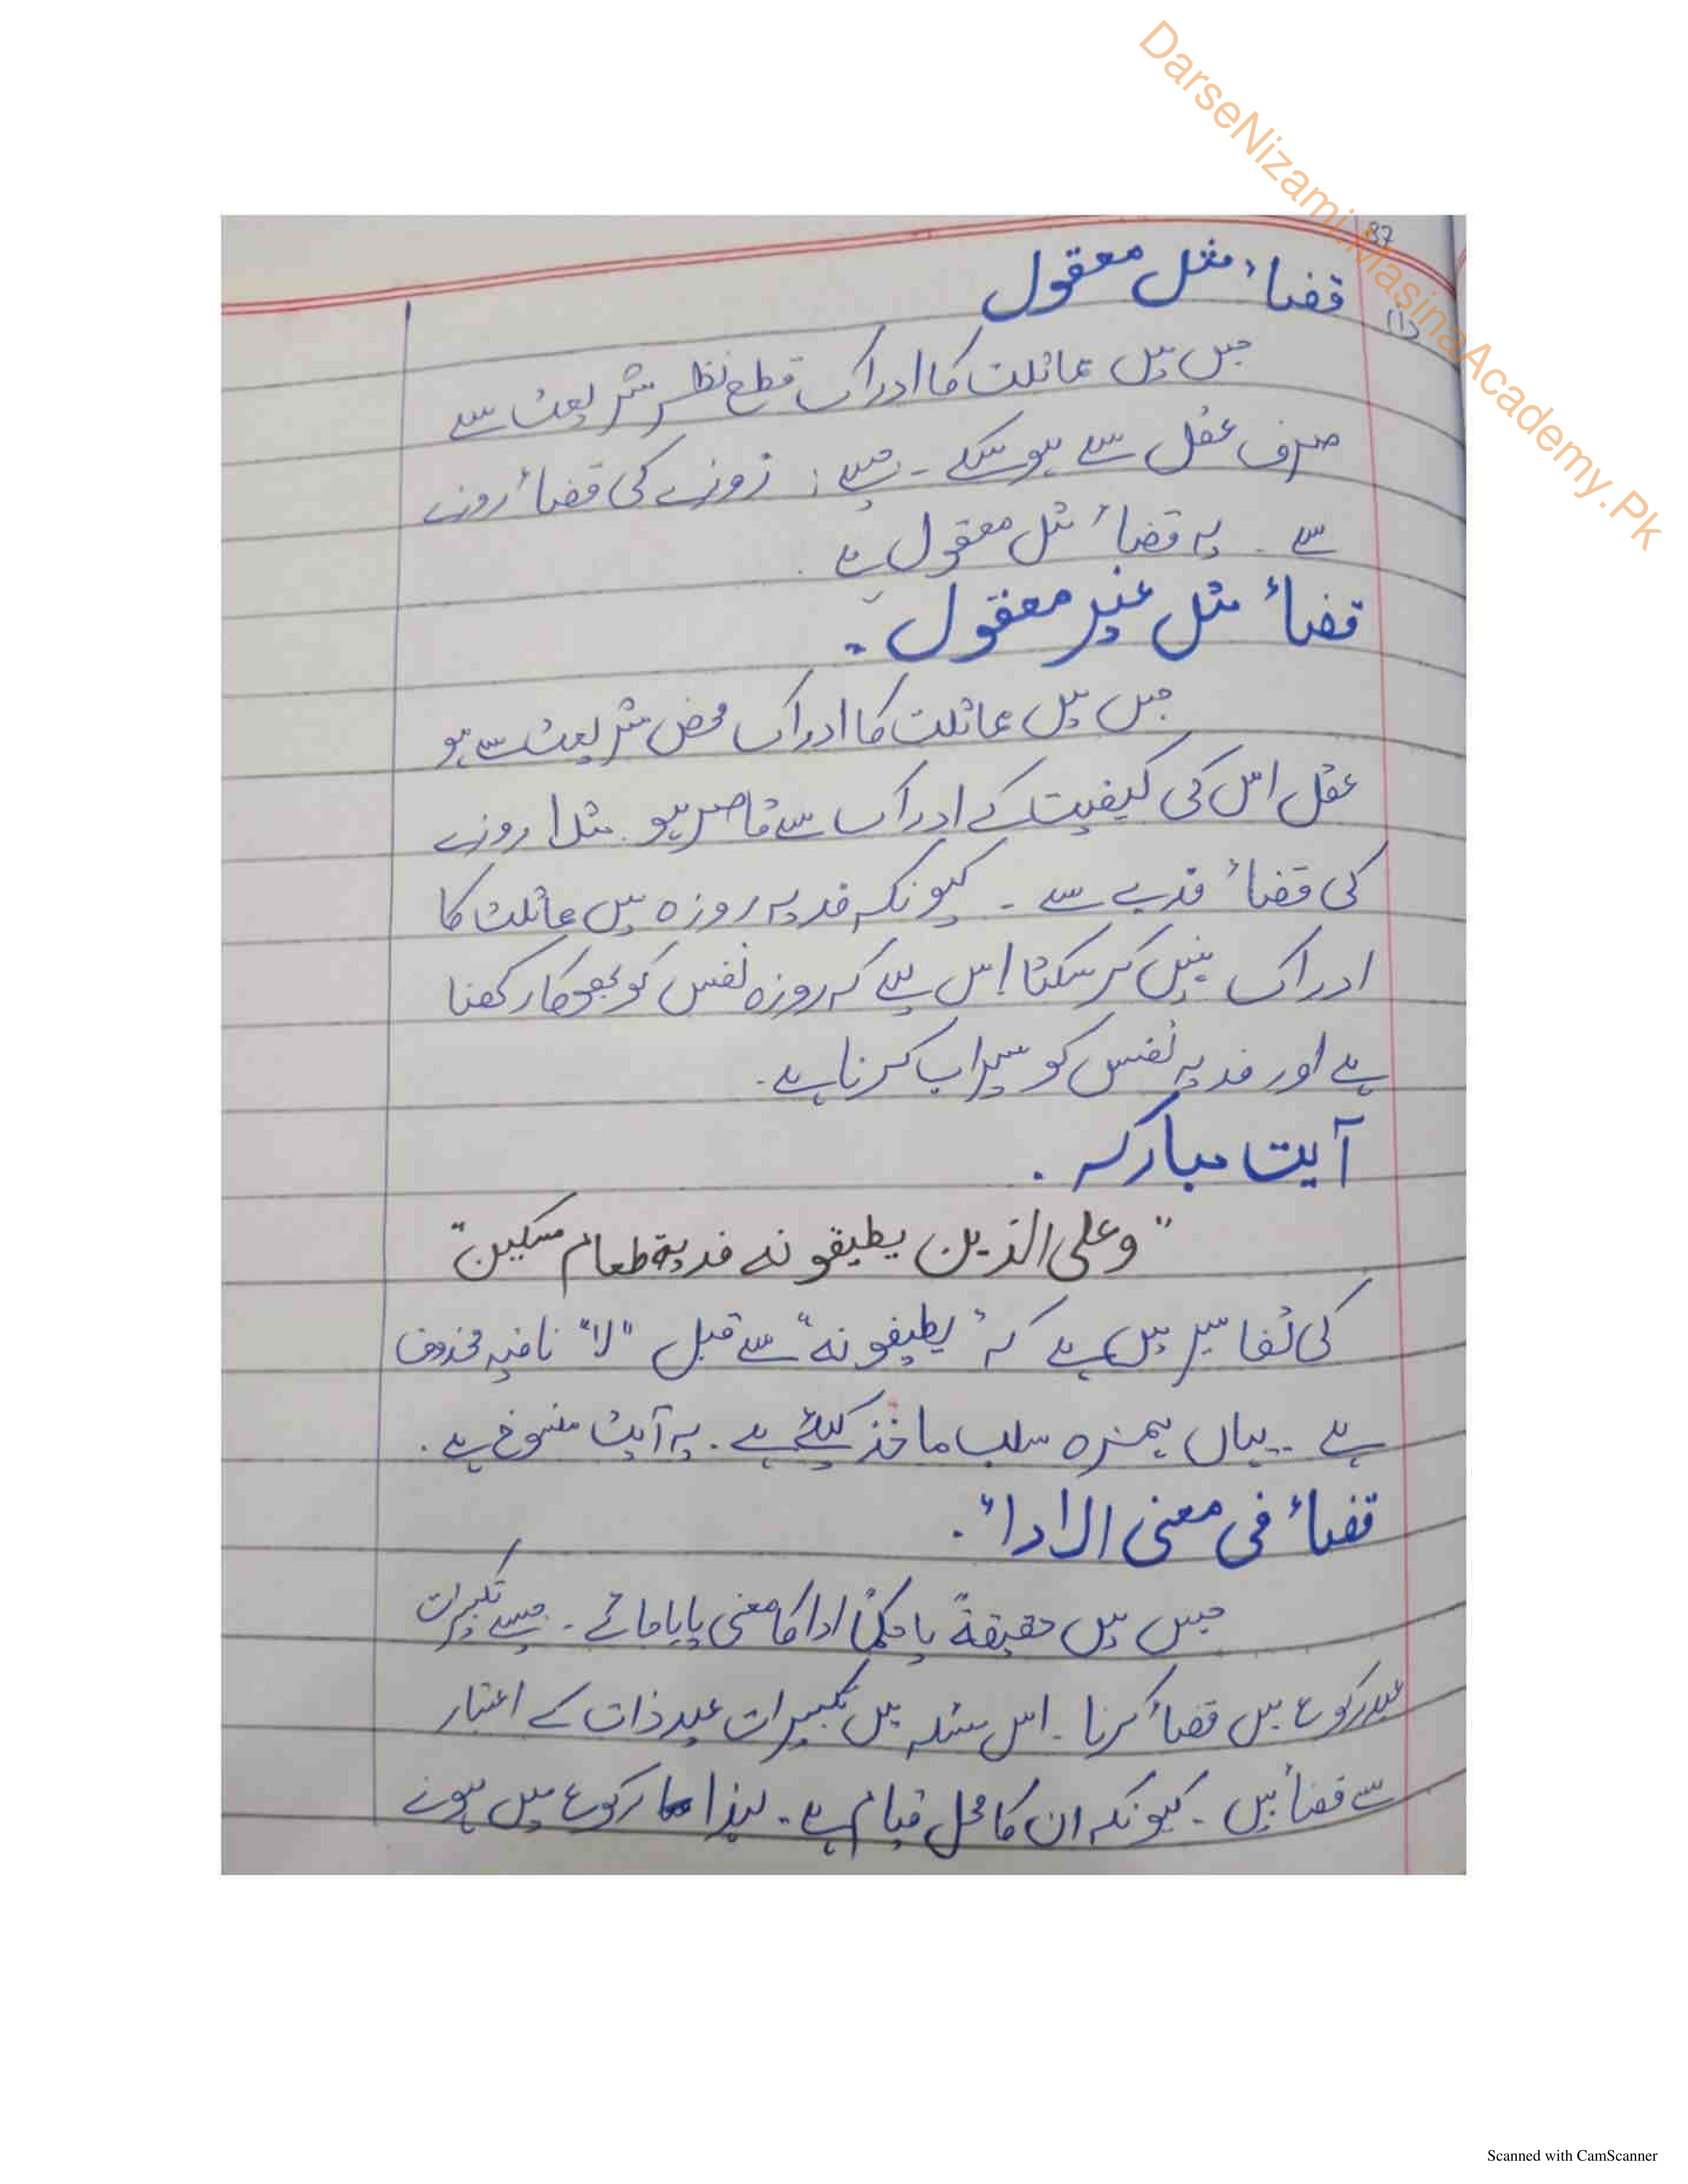 DarseNizami.MasinaAcademy.Pk
37
(1)
قضاء مثل معقول
جس میں مماثلت کا ادراک قطع نظر شریعت سے
صرف عقل سے ہو سکے ۔ جیسے : روزے کی قضاء روزے
سے ۔ یہ قضاء مثل معقول ہے ۔
قضاء مثل غیر معقول ۔
جس میں مماثلت کا ادراک محض شریعت سے ہو
عقل اس کی کیفیت کے ادراک سے قاصر ہو ۔ مثلا روزے
کی قضاء فدیے سے ۔ کیونکہ فدیہ روزہ میں مماثلت کا
ادراک نہیں کر سکتا اس لیے کہ روزہ نفس کو بھوکا رکھنا
ہے اور فدیہ نفس کو سیراب کرنا ہے ۔
آیت مبارکہ ۔
"وعلی الذین یطیقونہ فدیة طعام مسکین"
کی تفاسیر میں ہے کہ "یطیقونہ" سے قبل "لا" نافیہ محذوف
ہے ۔ یہاں ہمزہ سلب ماخذ کیلئے ہے ۔ یہ آیت منسوخ ہے ۔
قضاء فی معنی الاداء ۔
جس میں حقیقةً یا حکماً ادا کا معنی پایا جائے ۔ جیسے تکبیرات
عید رکوع میں قضاء کرنا ۔ اس مسئلہ میں تکبیرات عید ذات کے اعتبار
سے قضا ہیں ۔ کیونکہ ان کا محل قیام ہے ۔ لہذا رکوع میں ہونے
Scanned with CamScanner